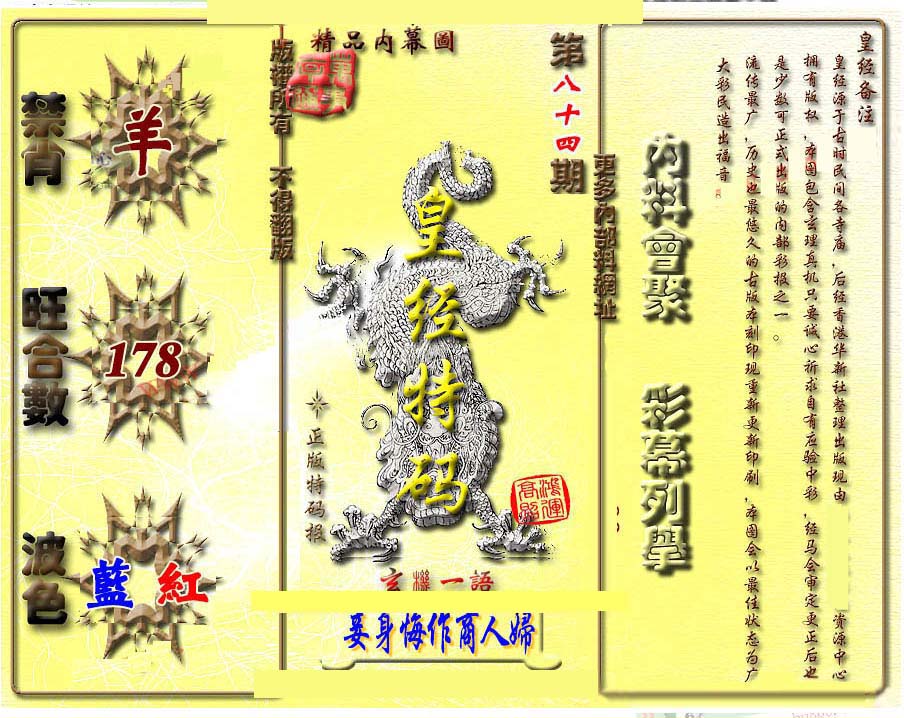 精品内幕圖
第八十四期
版權所有 不得翻版
更多內部料網址
禁肖
羊
旺合數
178
波色
藍 紅
皇经特码
正版特码报
鴻運高照
玄機一語
妾身悔作商人婦
內料會聚
彩幕列舉
皇经备注
皇经源于古时民间各寺庙，后经香港华新社整理出版现由
资源中心
拥有版权，本图包含玄理真机只要诚心祈求自有应验中彩，经马会审定更正后也
是少数可正式出版的内部彩报之一。
流传最广，历史也最悠久的古版本刻印现重新更新印刷，本图会以最佳状态为广
大彩民造出福音